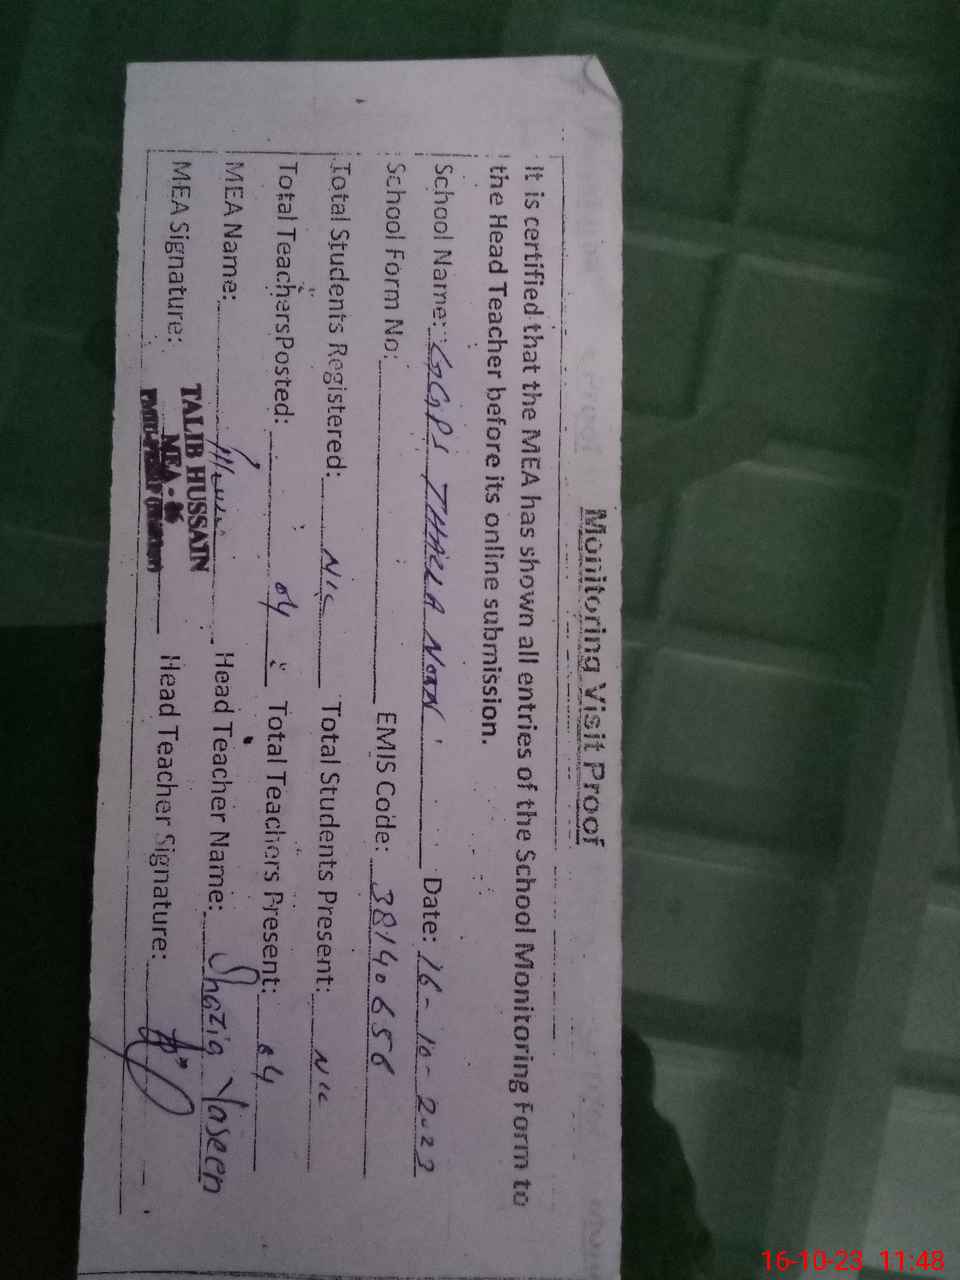 Monitoring Visit Proof
It is certified that the MEA has shown all entries of the School Monitoring Form to
the Head Teacher before its online submission.
School Name: GGPS THALLA NOON Date: 16-10-2023
School Form No: EMIS Code: 38140656
Total Students Registered: Nil Total Students Present: Nil
Total Teachers Posted: 04 Total Teachers Present: 04
MEA Name: Head Teacher Name: Shazia Yaseen
TALIB HUSSAIN
MEA Signature: MEA- Head Teacher Signature:
16-10-23 11:48